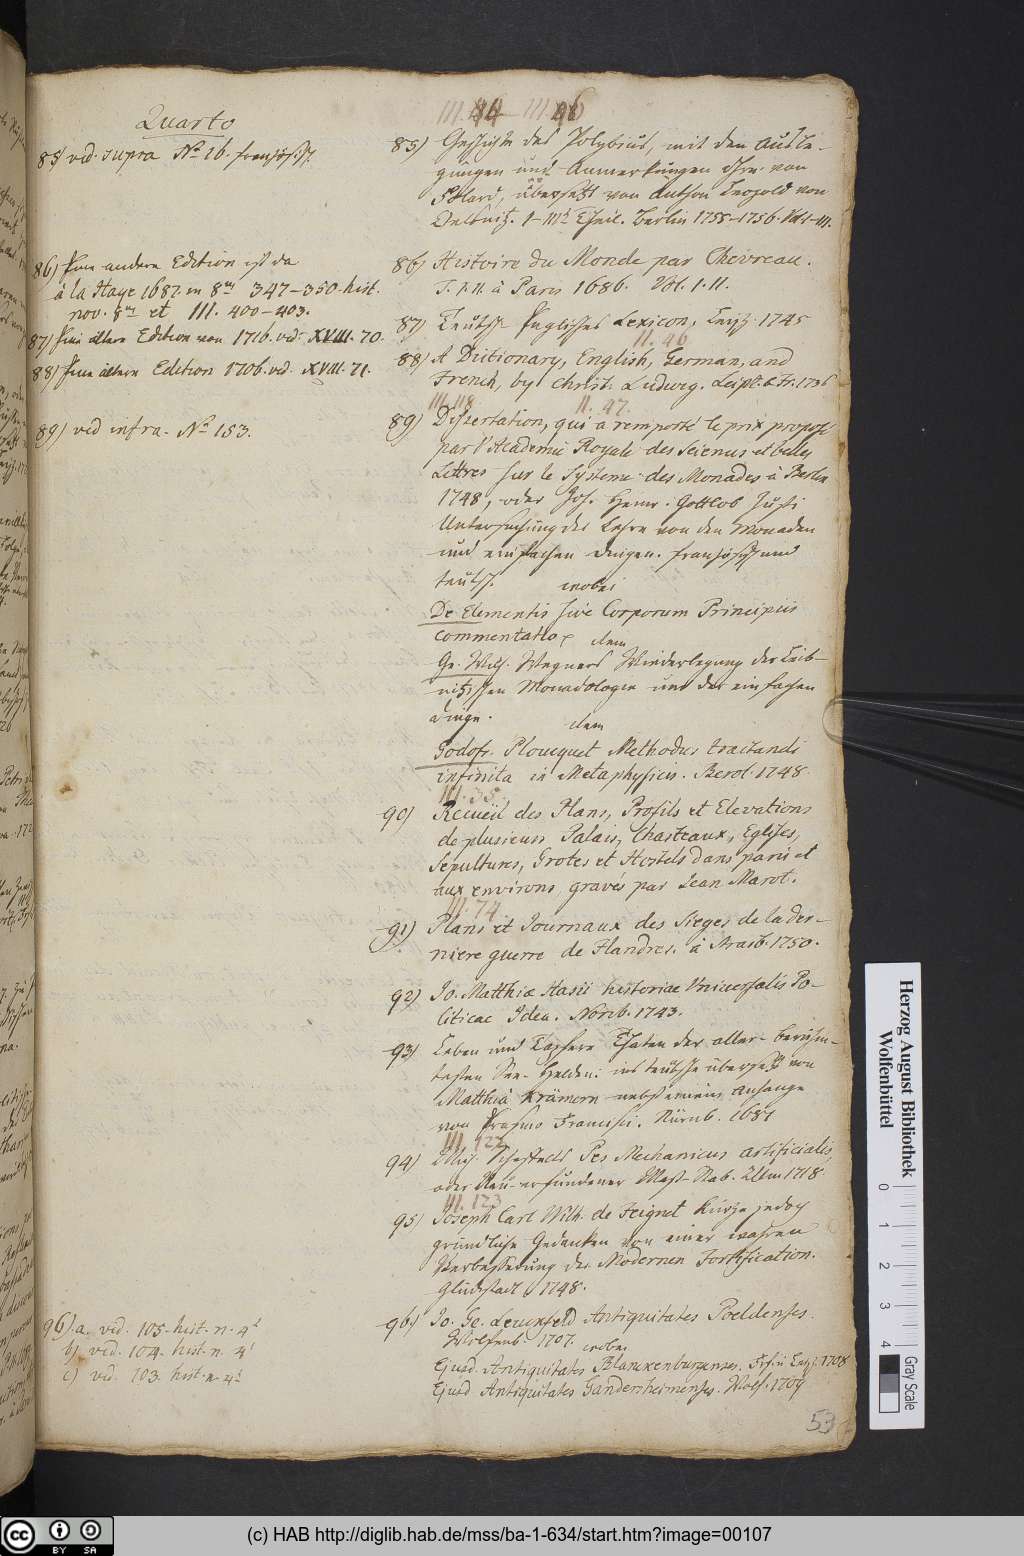 Quarto
85) vid. supra No 16. französisch.
86) Eine andere Edition ist da
à la Haye 1687. in 8vo 347–350. hist.
nov. 8vo et III. 400–403.
87) Eine ältere Edition von 1716. vid. XVIII. 70.
88) Eine ältere Edition 1706. vid. XVIII. 71.
89) vid infra. No 153.
96) a. vid. 105. hist. n. 4t
b) vid. 104. hist. n. 4t
c) vid. 103. hist. n. 4t
III. 44 – III. 46
85) Geschichte des Polybius, mit den Ausle-
gungen und Anmerkungen Hrn. von
Folard, übersetzt von Anthon Leopold von
Oelsnitz. I–III Theil. Berlin 1755–1756. Vol. I–III.
86) Histoire du Monde par Chevreau.
T. I. II. à Paris 1686. Vol. I. II.
87) Teutsch Englisches Lexicon, Leipz. 1745
II. 46
88) A Dictionary, English, German, and
French, by Christ. Ludwig. Leipz. & Fr. 1736
III. 118. II. 47.
89) Dissertation, qui a remporté le prix proposé
par l'Academie Royale des Sciences et belles
Lettres sur le Systeme des Monades à Berlin
1748, oder Joh. Heinr. Gottlob Justi
Untersuchung der Lehre von den Monaden
und einfachen Dingen. französisch und
teutsch. wobei
De Elementis sive Corporum Principiis
commentatio, item
Ge. Wilh. Wegners Wiederlegung der Leib-
nitzischen Monadologie und der einfachen
Dinge. item
Godofr. Ploucquet Methodus tractandi
infinita in Metaphysicis. Berol. 1748
III. 35.
90) Recueil des Plans, Profils et Elevations
de plusieurs Palais, Chasteaux, Eglises,
Sepultures, Grotes et Hostels dans paris et
aux environs gravés par Jean Marot.
III. 74.
91) Plans et Journaux des Sieges de la der-
niere guerre de Flandres. à Strasb. 1750.
92) Jo. Matthiae Hasii historiae Universalis Po-
liticae Idea. Norib. 1743.
93) Leben und Tapfere Thaten der aller-berühm-
testen See-Helden: ins teutsche übersetzt von
Matthia Krämern nebst einem Anhange
von Erasmo Francisci. Nürnb. 1681
III. 122
94) Scheffelts Pes Mechanicus artificialis,
oder Neu-erfundener Mass-Stab. Ulm 1718
III. 123
95) Joseph Carl Wilh. de Feignet kurze jedoch
gründliche Gedanken von einer wahren
Verbesserung der Modernen Fortification.
Glückstadt 1748.
96) Jo. Ge. Leuckfeld Antiquitates Poeldenses.
Wolfenb. 1707. wobei
Ejusd. Antiquitates Blanckenburgenses. Frf. u. Leipz. 1708
Ejusd Antiquitates Gandersheimenses. Wolf. 1709
53
Herzog August Bibliothek
Wolfenbüttel
0 1 2 3 4
Gray Scale
cc BY SA
(c) HAB http://diglib.hab.de/mss/ba-1-634/start.htm?image=00107